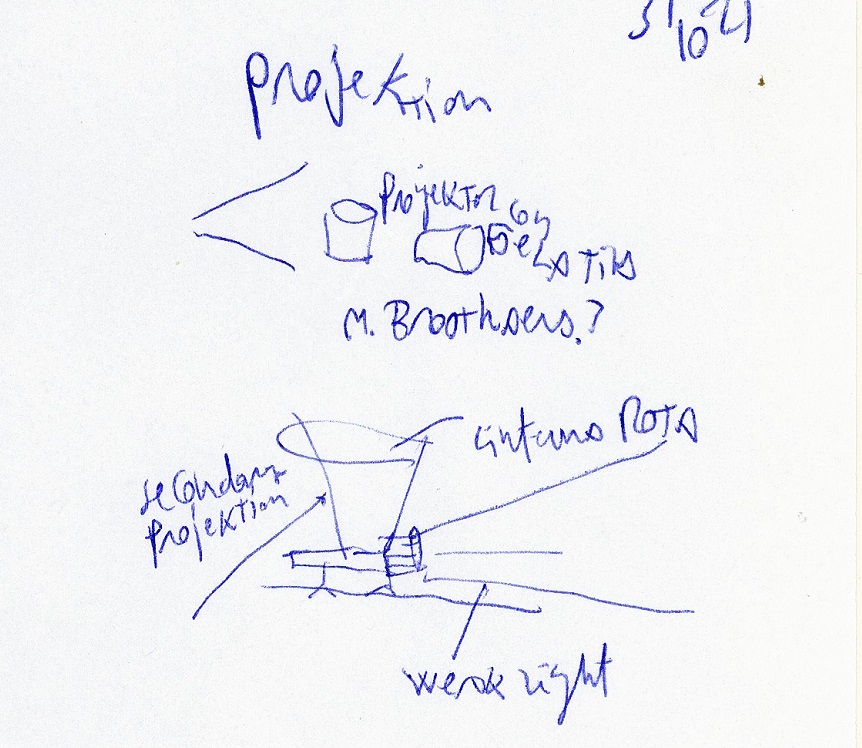 31/10 21
Projektion
Projektor con
Gelatina
M. Broothaers?
linterna ROTA
secondary
Projektion
weak light